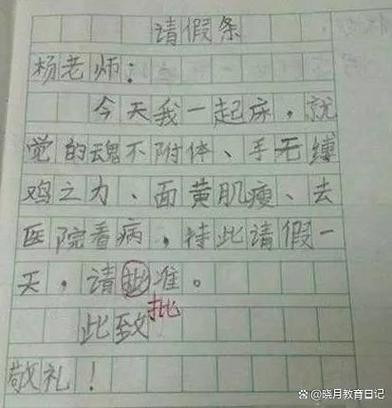 请假条
杨老师：
今天我一起床，就
觉的魂不附体、手无缚
鸡之力、面黄肌瘦、去
医院看病，特此请假一
天，请批准。
批
此致
敬礼！
@晓月教育日记